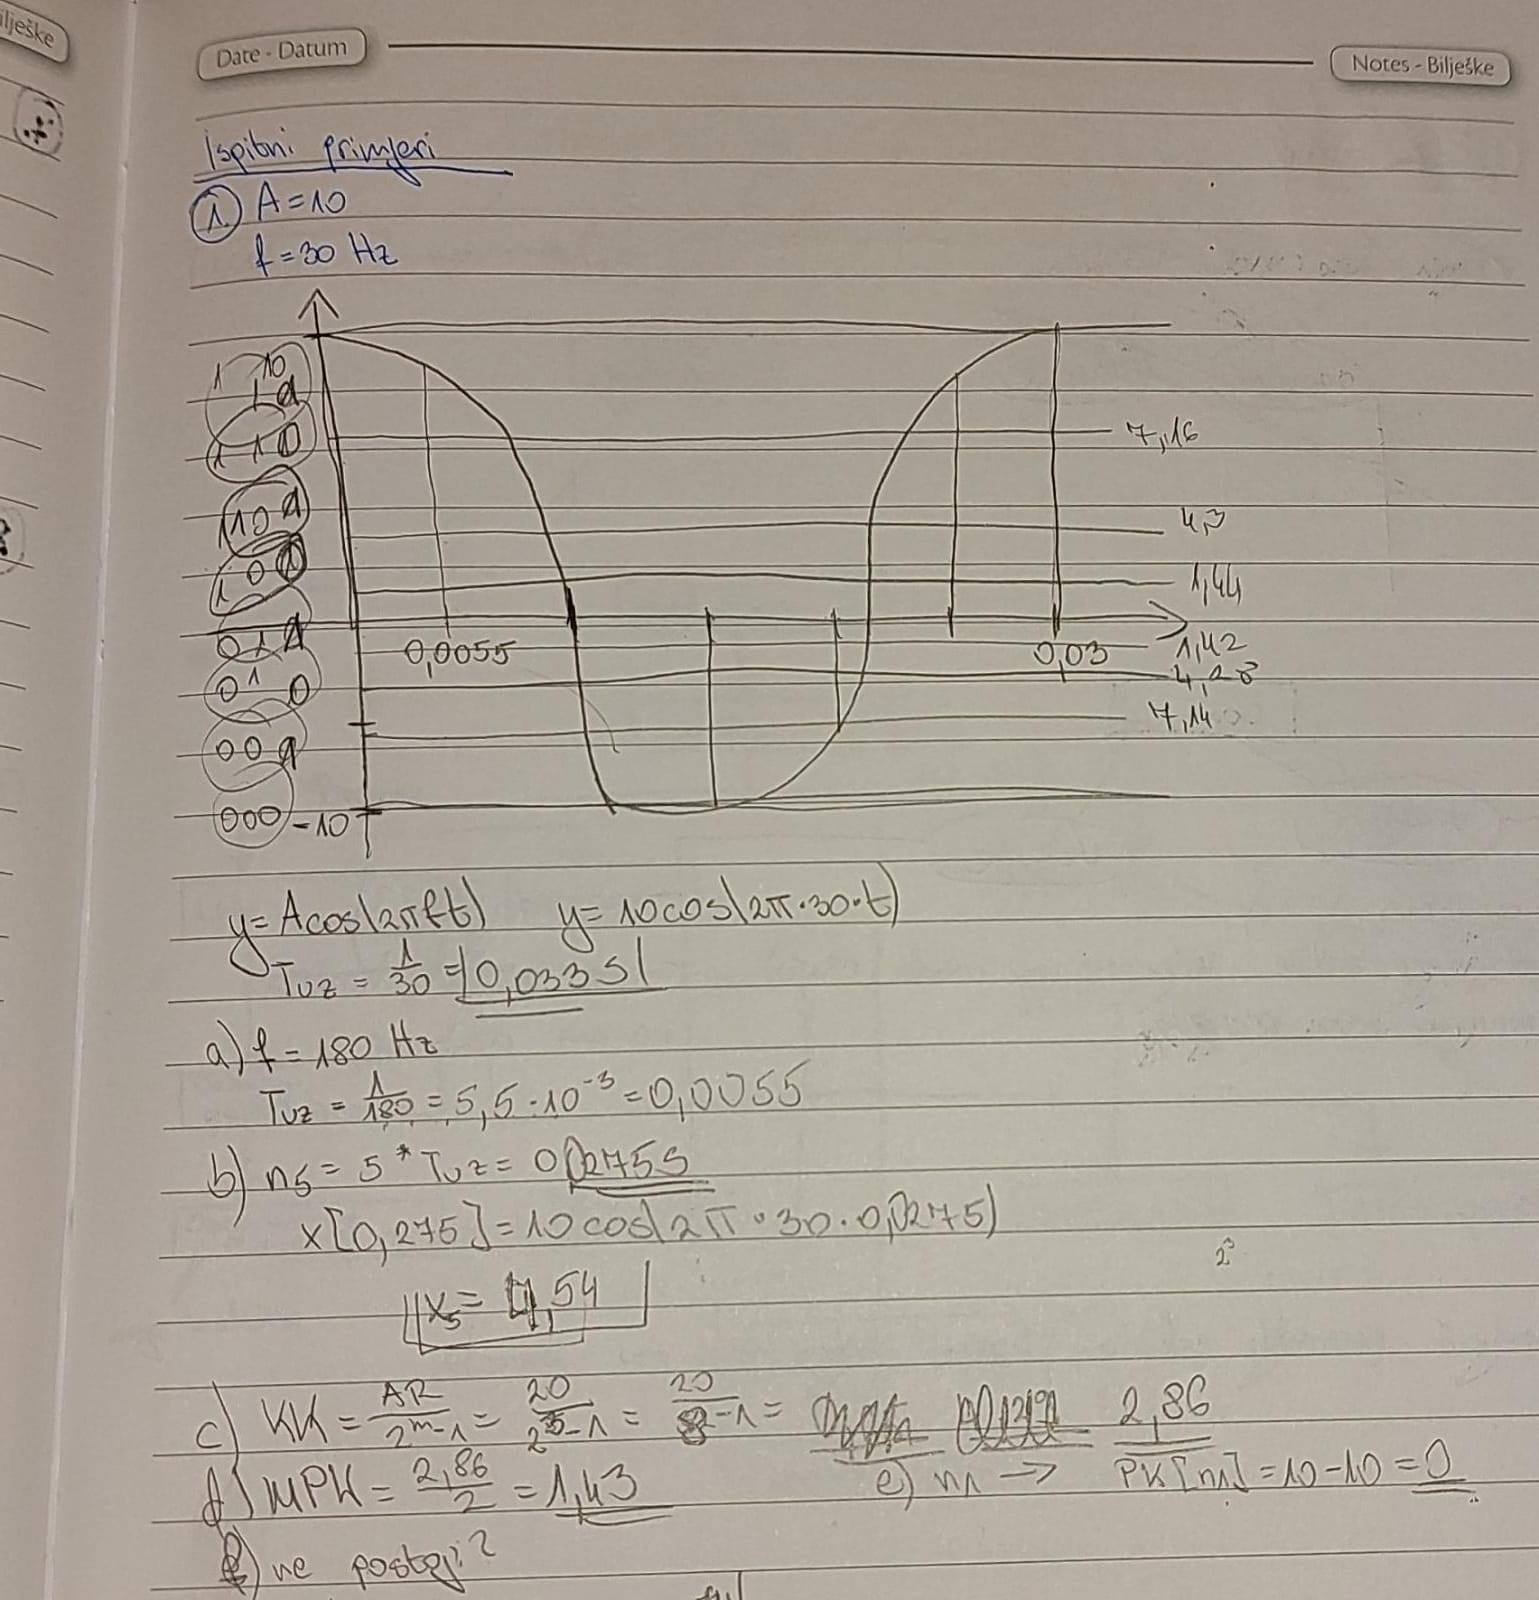 ilješke
Date - Datum
Notes - Bilješke
Ispitni primjeri
1. A=10
f=30 Hz
10
111
110
7,16
101
4,3
100
1,44
011
0,0055
0,03
1,42
010
4,28
001
7,14
000 -10
y=Acos(2πft) y=10cos(2π·30·t)
Tuz = 1/30 = 0,033 s
a) f=180 Hz
Tuz = 1/180 = 5,5·10⁻³ = 0,0055
b) n5 = 5*Tuz = 0,0275s
x[0,275] = 10cos(2π·30·0,0275)
2³
x5 = 4,54
c) KK = AR/2^m-1 = 20/2^3-1 = 20/8-1 = 2,86
d) MPK = 2,86/2 = 1,43 e) n1 → PK[n1] = 10-10 = 0
f) ne postoji?